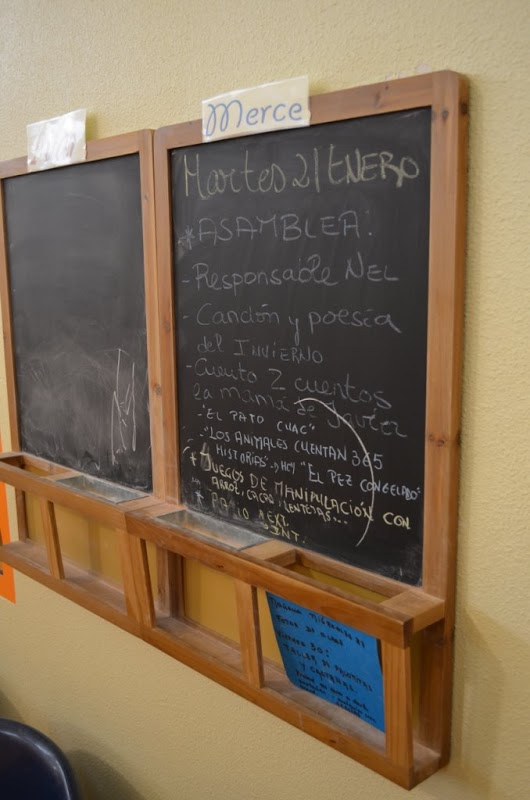 Merce
Martes 21 ENERO
* ASAMBLEA:
- Responsable NEL
- Canción y poesía
del INVIERNO
- Cuento 2 cuentos
la mamá de Javier
- "EL PATO CUAC"
- "LOS ANIMALES CUENTAN 365
HISTORIAS" -> HOY "EL PEZ CONGELADO"
* JUEGOS DE MANIPULACIÓN CON
ARROZ, CACAO, LENTEJAS...
* PATIO EXT.
INT.
VIERNES 30:
TALLER DE
Y